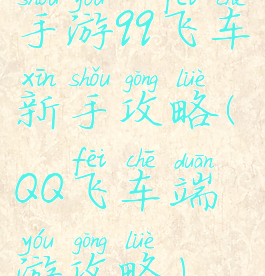 shǒu yóu fēi chē
手游99飞车
xīn shǒu gōng lüè
新手攻略(
fēi chē duān
QQ飞车端
yóu gōng lüè
游攻略)